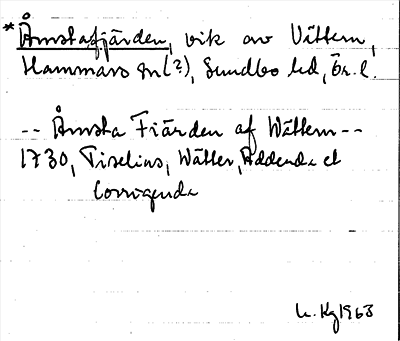 * Åmstafjärden, vik av Vättern,
Hammars sn(?), Sundbo hd, Ör. l.
-- Åmsta Fiärden af Wättern --
1730, Tiselius, Wätter, Addenda et
Corrigenda
Kg 1963